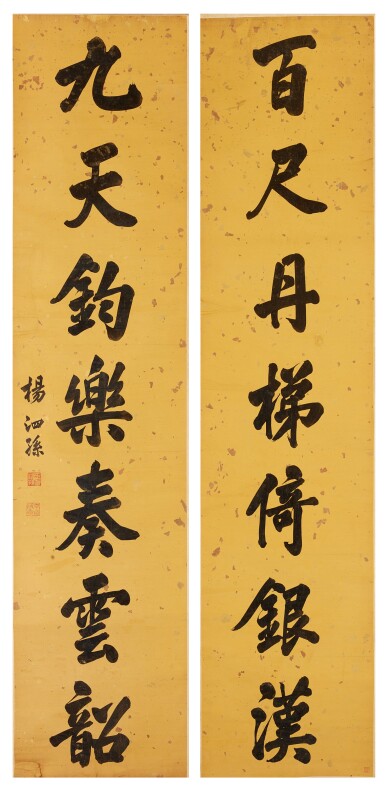 百尺丹梯倚銀漢
九天鈞樂奏雲韶
楊泗孫